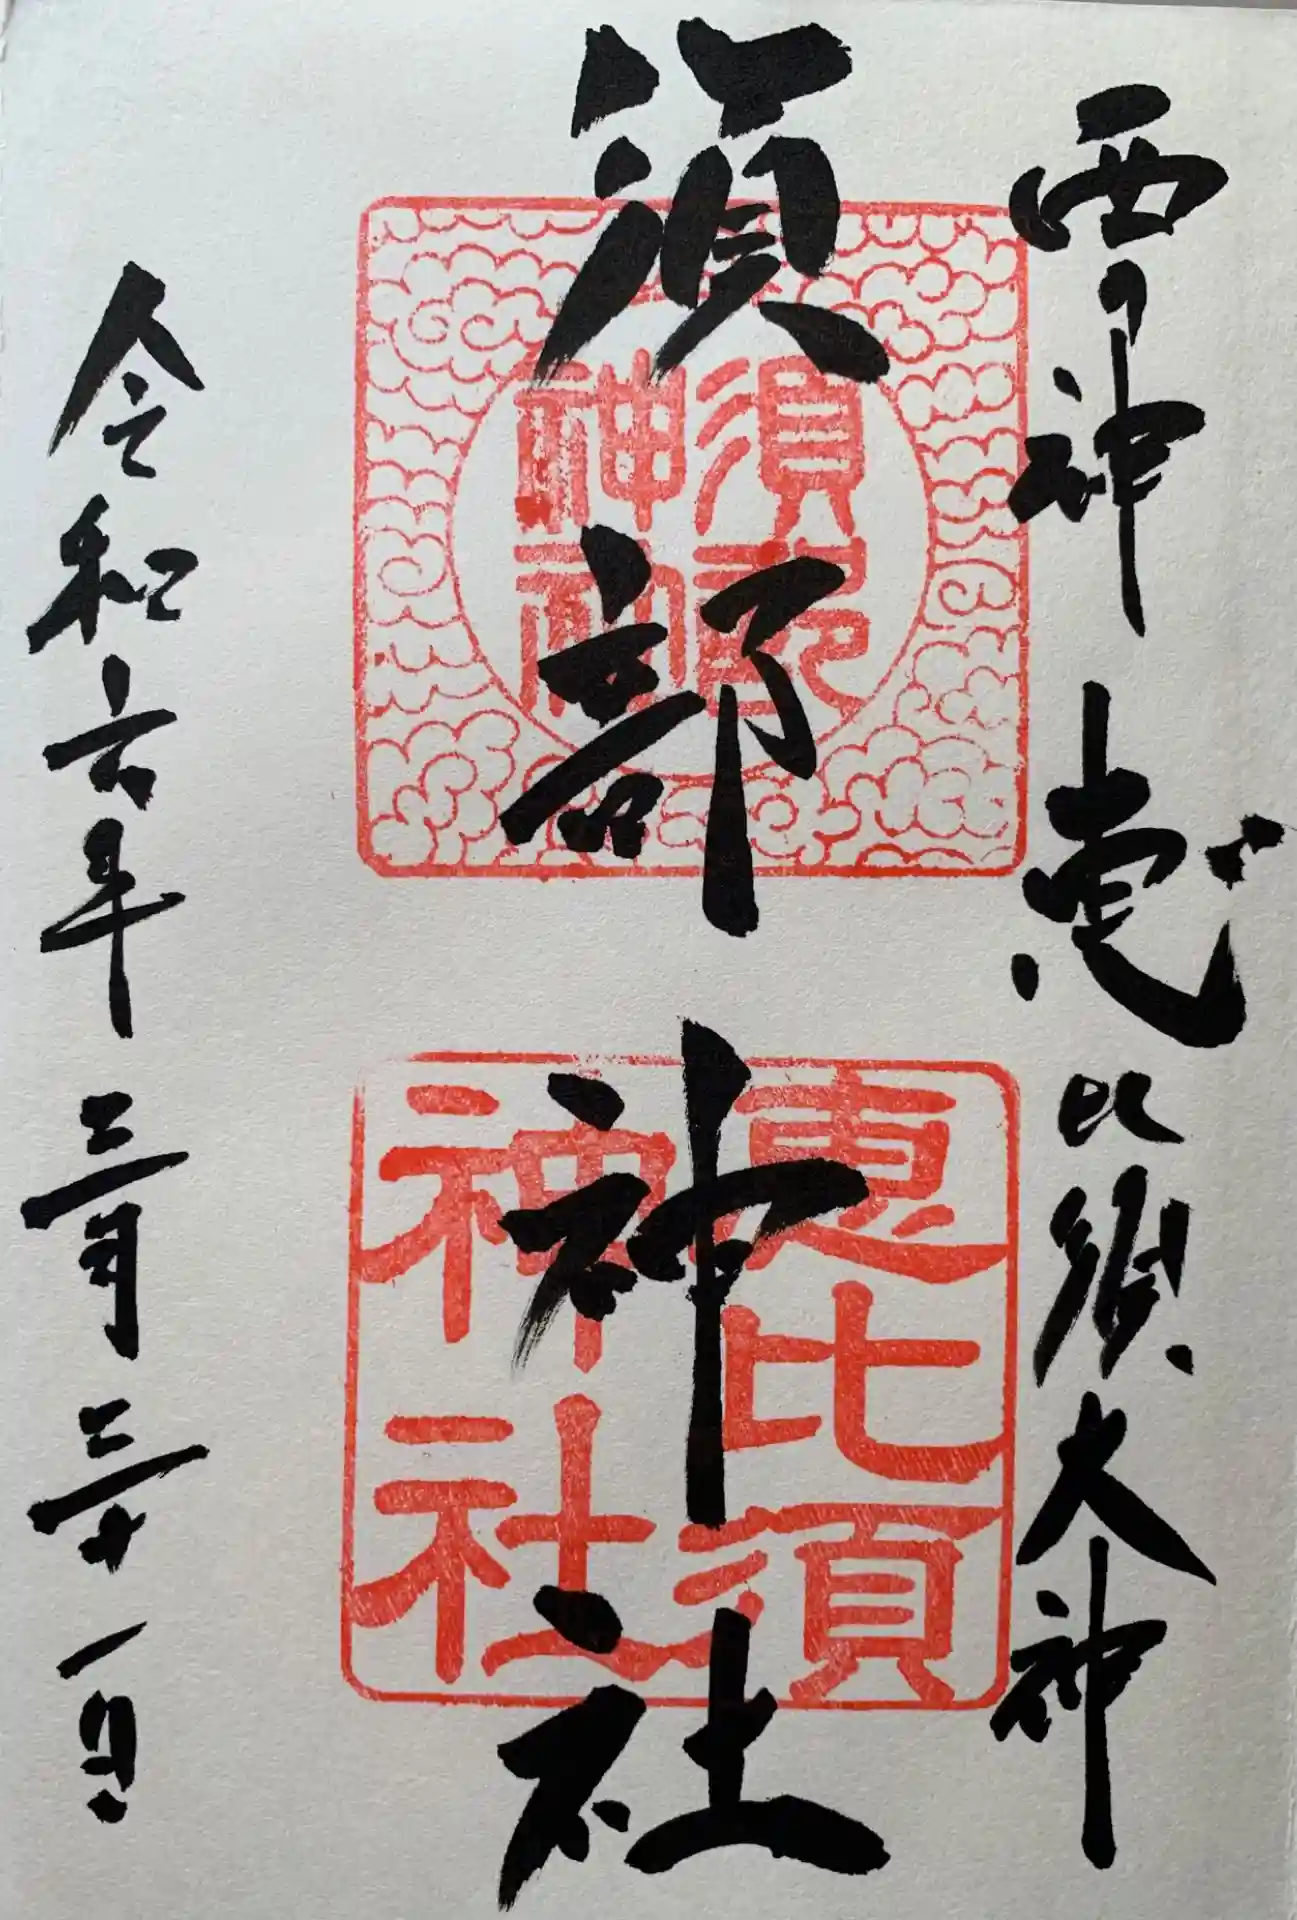 西の神 恵比須大神
須部神社
須部
神社
恵比須
神社
令和六年三月三十一日